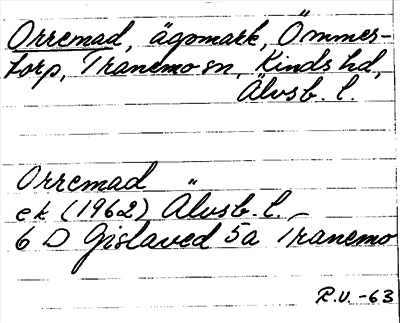 Orremad, ägomark, Ömmes-
torp, Tranemo sn, Kinds hd,
Älvsb. l.
Orremad
ek (1962) Älvsb. l.
6 D Gislaved 5a Tranemo
R.V. -63